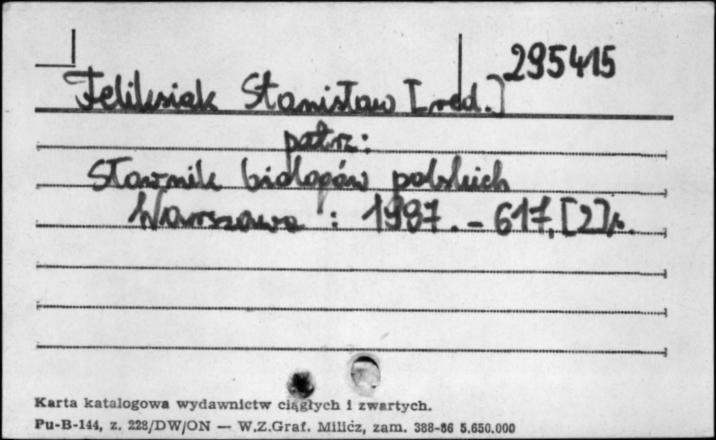 295415
Feliksiak Stanisław [red.]
patrz:
Słownik biologów polskich
Warszawa : 1987. - 617, [2] s.
Karta katalogowa wydawnictw ciągłych i zwartych.
Pu-B-144, z. 228/DW/ON — W.Z.Graf. Milicz, zam. 388-86 5.650.000